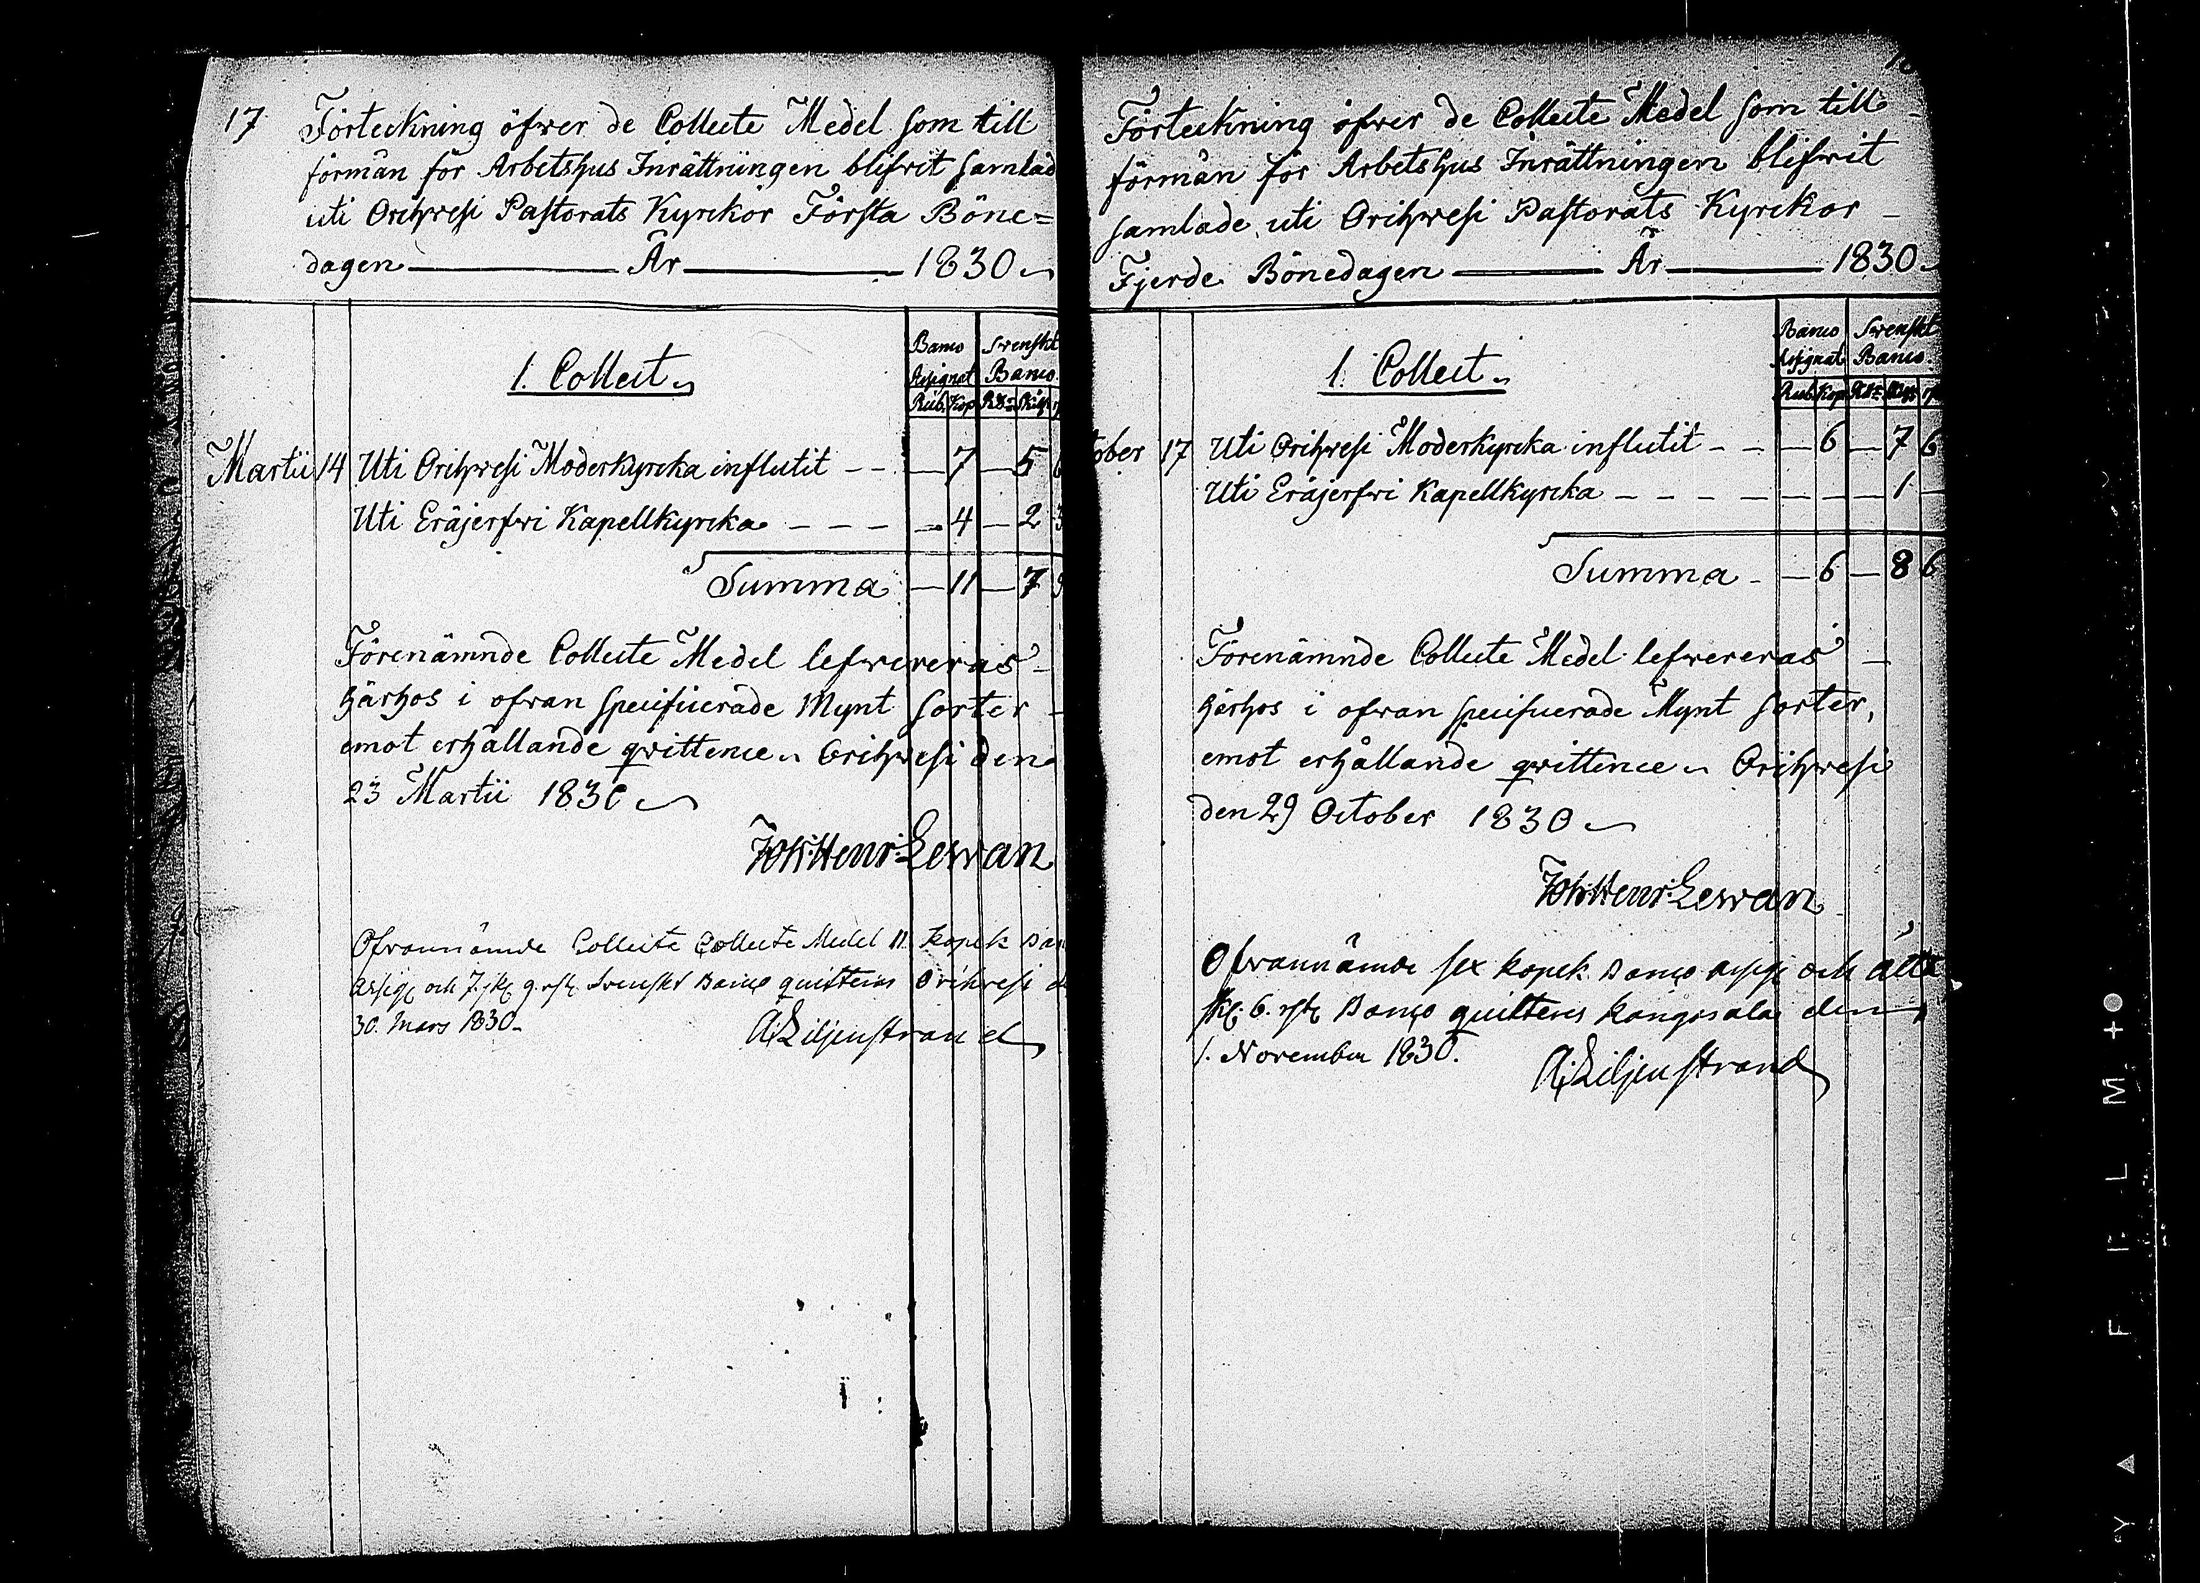 17
Förteckning öfwer de Collecte Medel som till
förmån för Arbetshus Inrättningen blifwit samlad
uti Orihwesi Pastorats Kyrckor Första Böne=
dagen — År — 1830
Banco Swenskt
Assignat Banco
1. Collect
Rub. Kop. Rdr Skill.
Martii 14 Uti Orihwesi Moderkyrcka influtit - - — 7 — 5 6
Uti Eräjerfwi Kapellkyrcka - - - — 4 — 2 3
Summa — 11 — 7 9
Förenämnde Collecte Medel lefwereras
härhos i ofwan specificerade Mynt sorter
emot erhållande qwittence Orihwesi den
23 Martii 1830
Joh: Henr: Lewan
Ofvannämde Collecte Collecte Medel 11 kopek Ban
assig: och 7. sk: 9. rst: Svenskt Banco quitteras Orihvesi d
30. Mars 1830.
A: Liljenstrand
Förteckning öfwer de Collecte Medel som till
förmån för Arbetshus Inrättningen blifwit
samlade uti Orihwesi Pastorats Kyrckor
Fjerde Bönedagen — År — 1830
Banco Swenskt
Assignat Banco.
1. Collect
Rub. Kop. Rdr Skill.
tober 17 Uti Orihwesi Moderkyrcka influtit - - — 6 — 7 6
Uti Eräjerfwi Kapellkyrcka - - - - — — — 1 —
Summa - — 6 — 8 6
Förenämnde Collecte Medel lefwereras
härhos i ofwan specificerade Mynt sorter,
emot erhållande qwittence Orihwesi
den 29 October 1830
Joh: Henr: Lewan
Ofvannämde sex kopek Banco assig: och åtta
sk: 6. rst: Banco quitteras Kangasala den
1. November 1830.
A: Liljenstrand